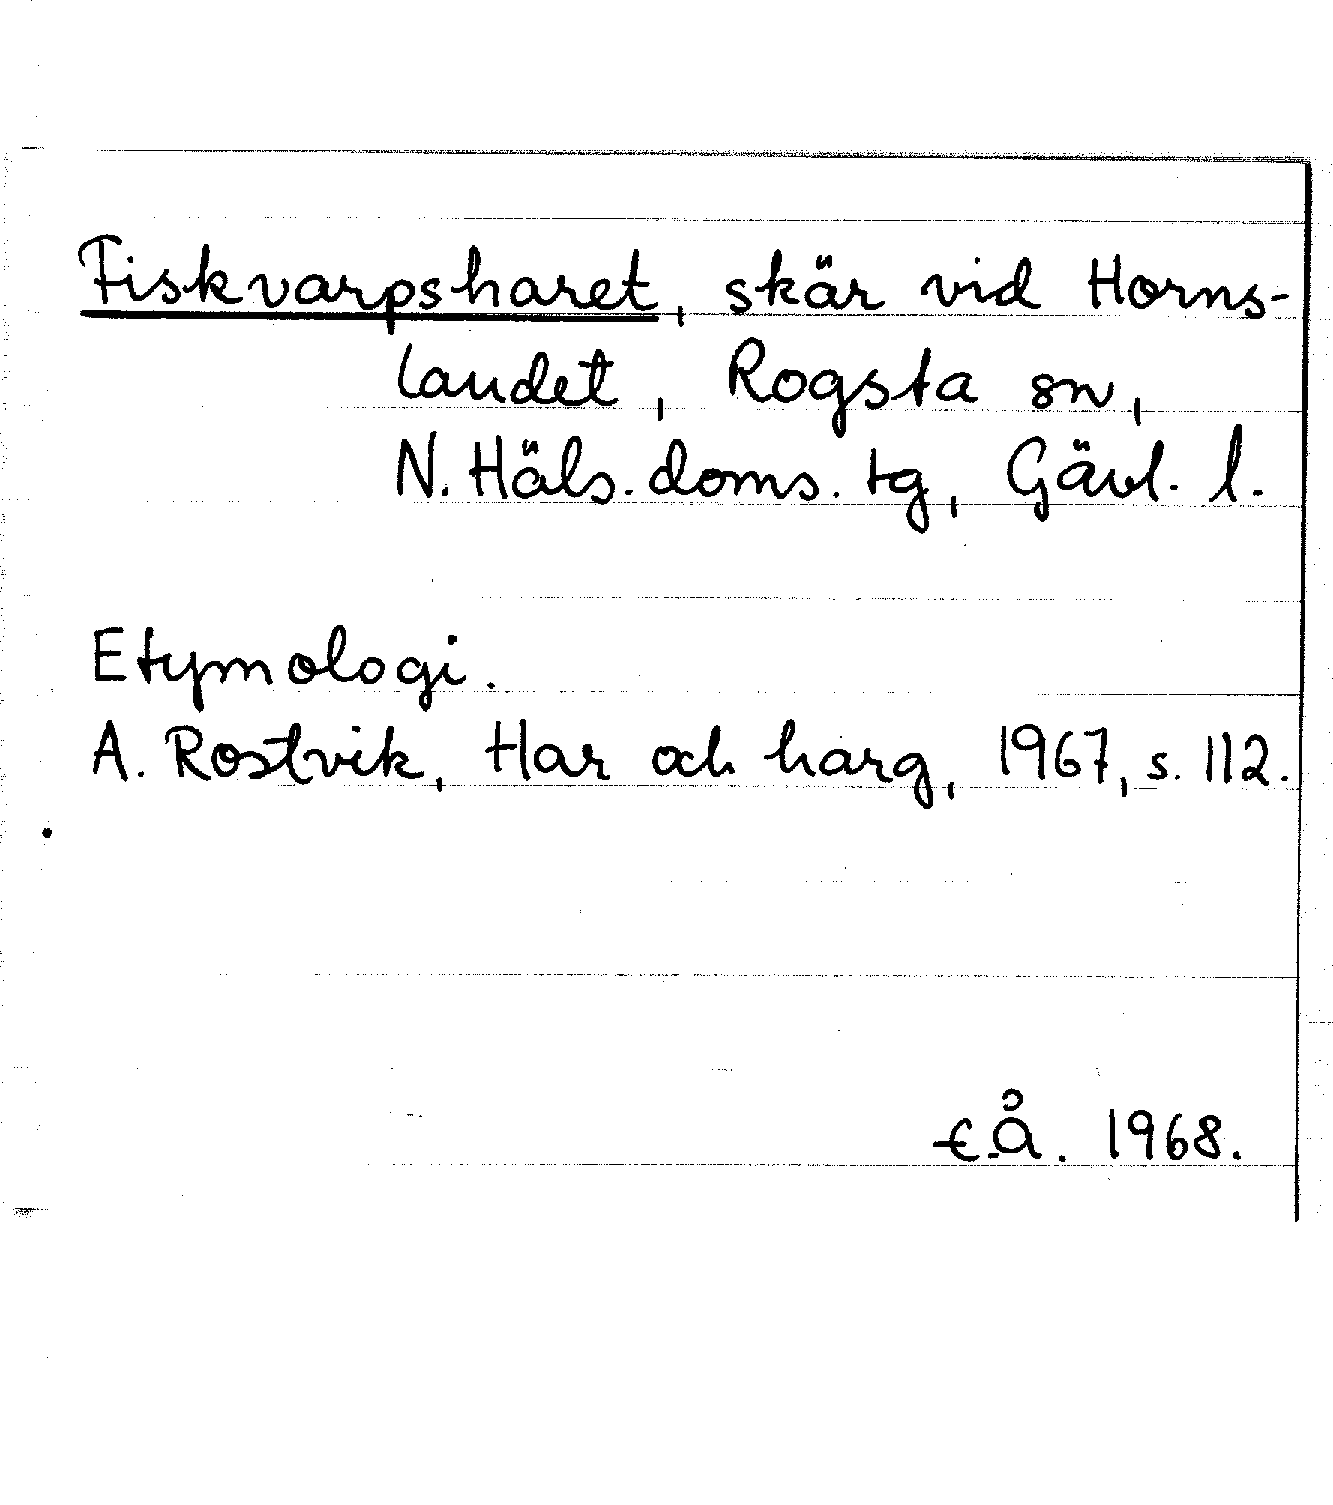 Fiskvarpsharet, skär vid Horns-
landet, Rogsta sn,
N. Häls. doms. tg, Gävl. l.
Etymologi.
A. Rostvik, Har och harg, 1967, s. 112.
E.Å. 1968.